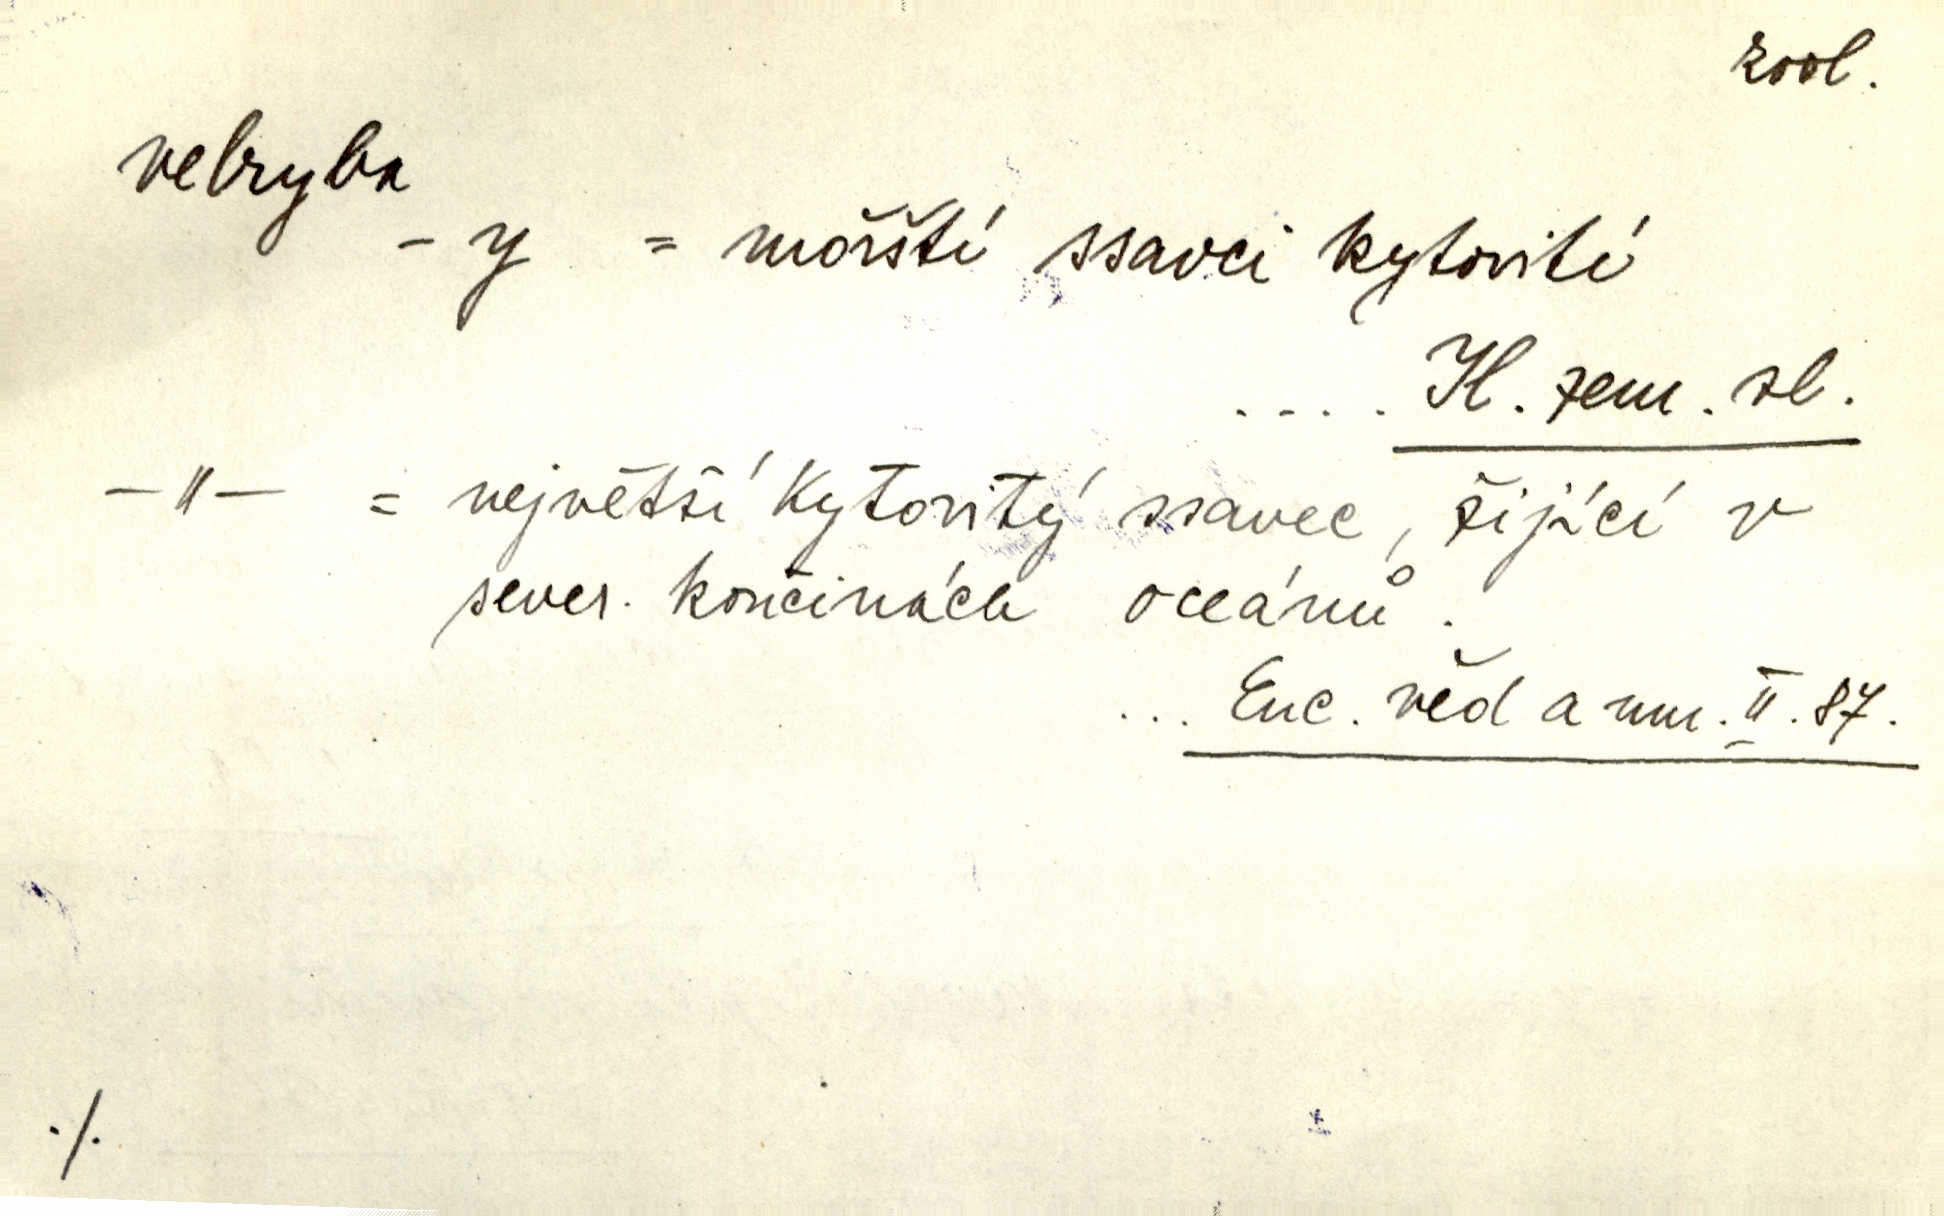 zool.
velryba
- y = mořští ssavci kytovití
.... Kl. zem. sl.
—"— = největší kytovitý ssavec, žijící v
sever. končinách oceánů.
... Enc. věd a um. II. 87.
./.